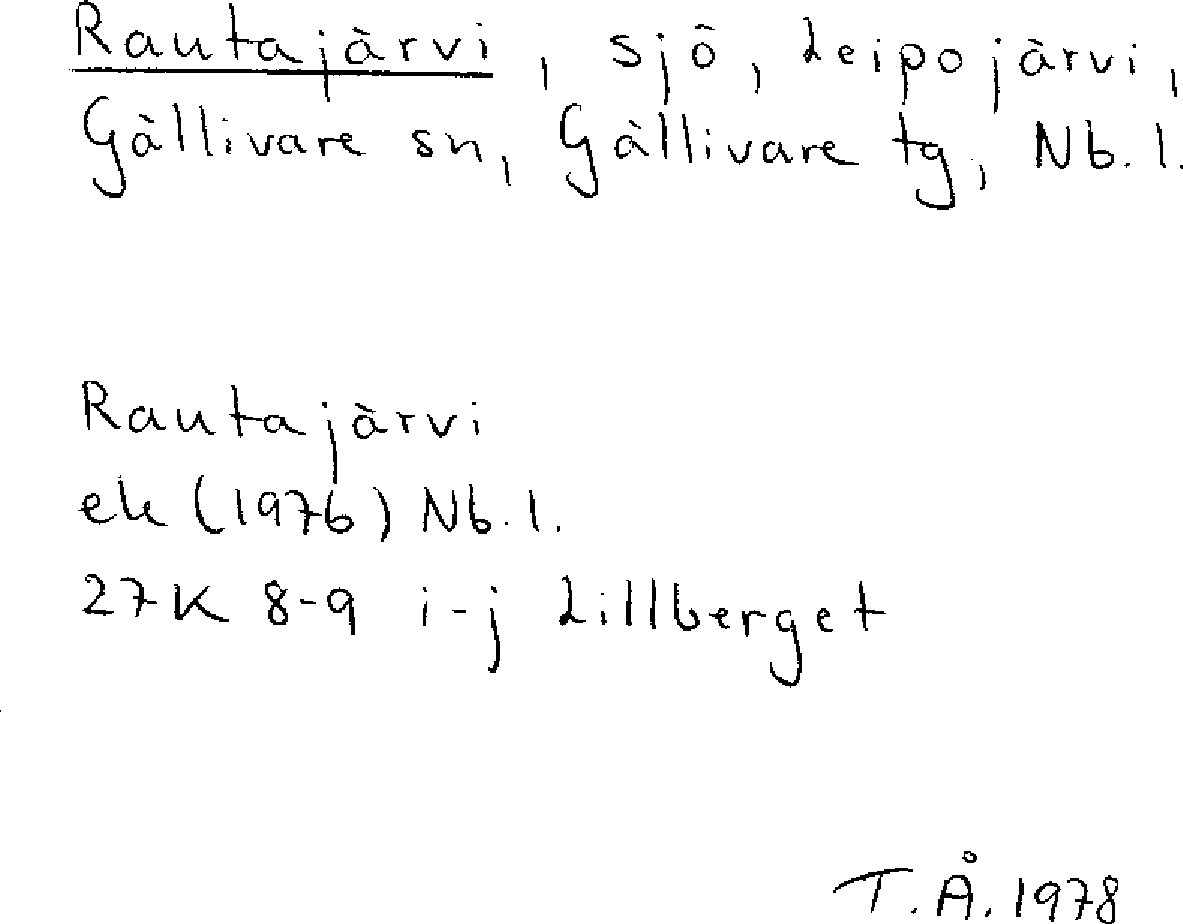 Rautajärvi, sjö, Leipojärvi,
Gällivare sn, Gällivare tg, Nb. l.
Rautajärvi
ek (1976) Nb. l.
27K 8-9 i-j Lillberget
T. Å. 1978